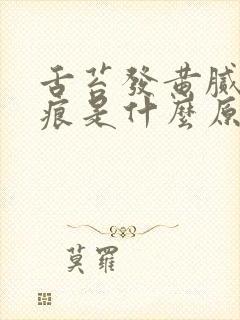 舌苔發黃膩
痕是什麼原
莫羅